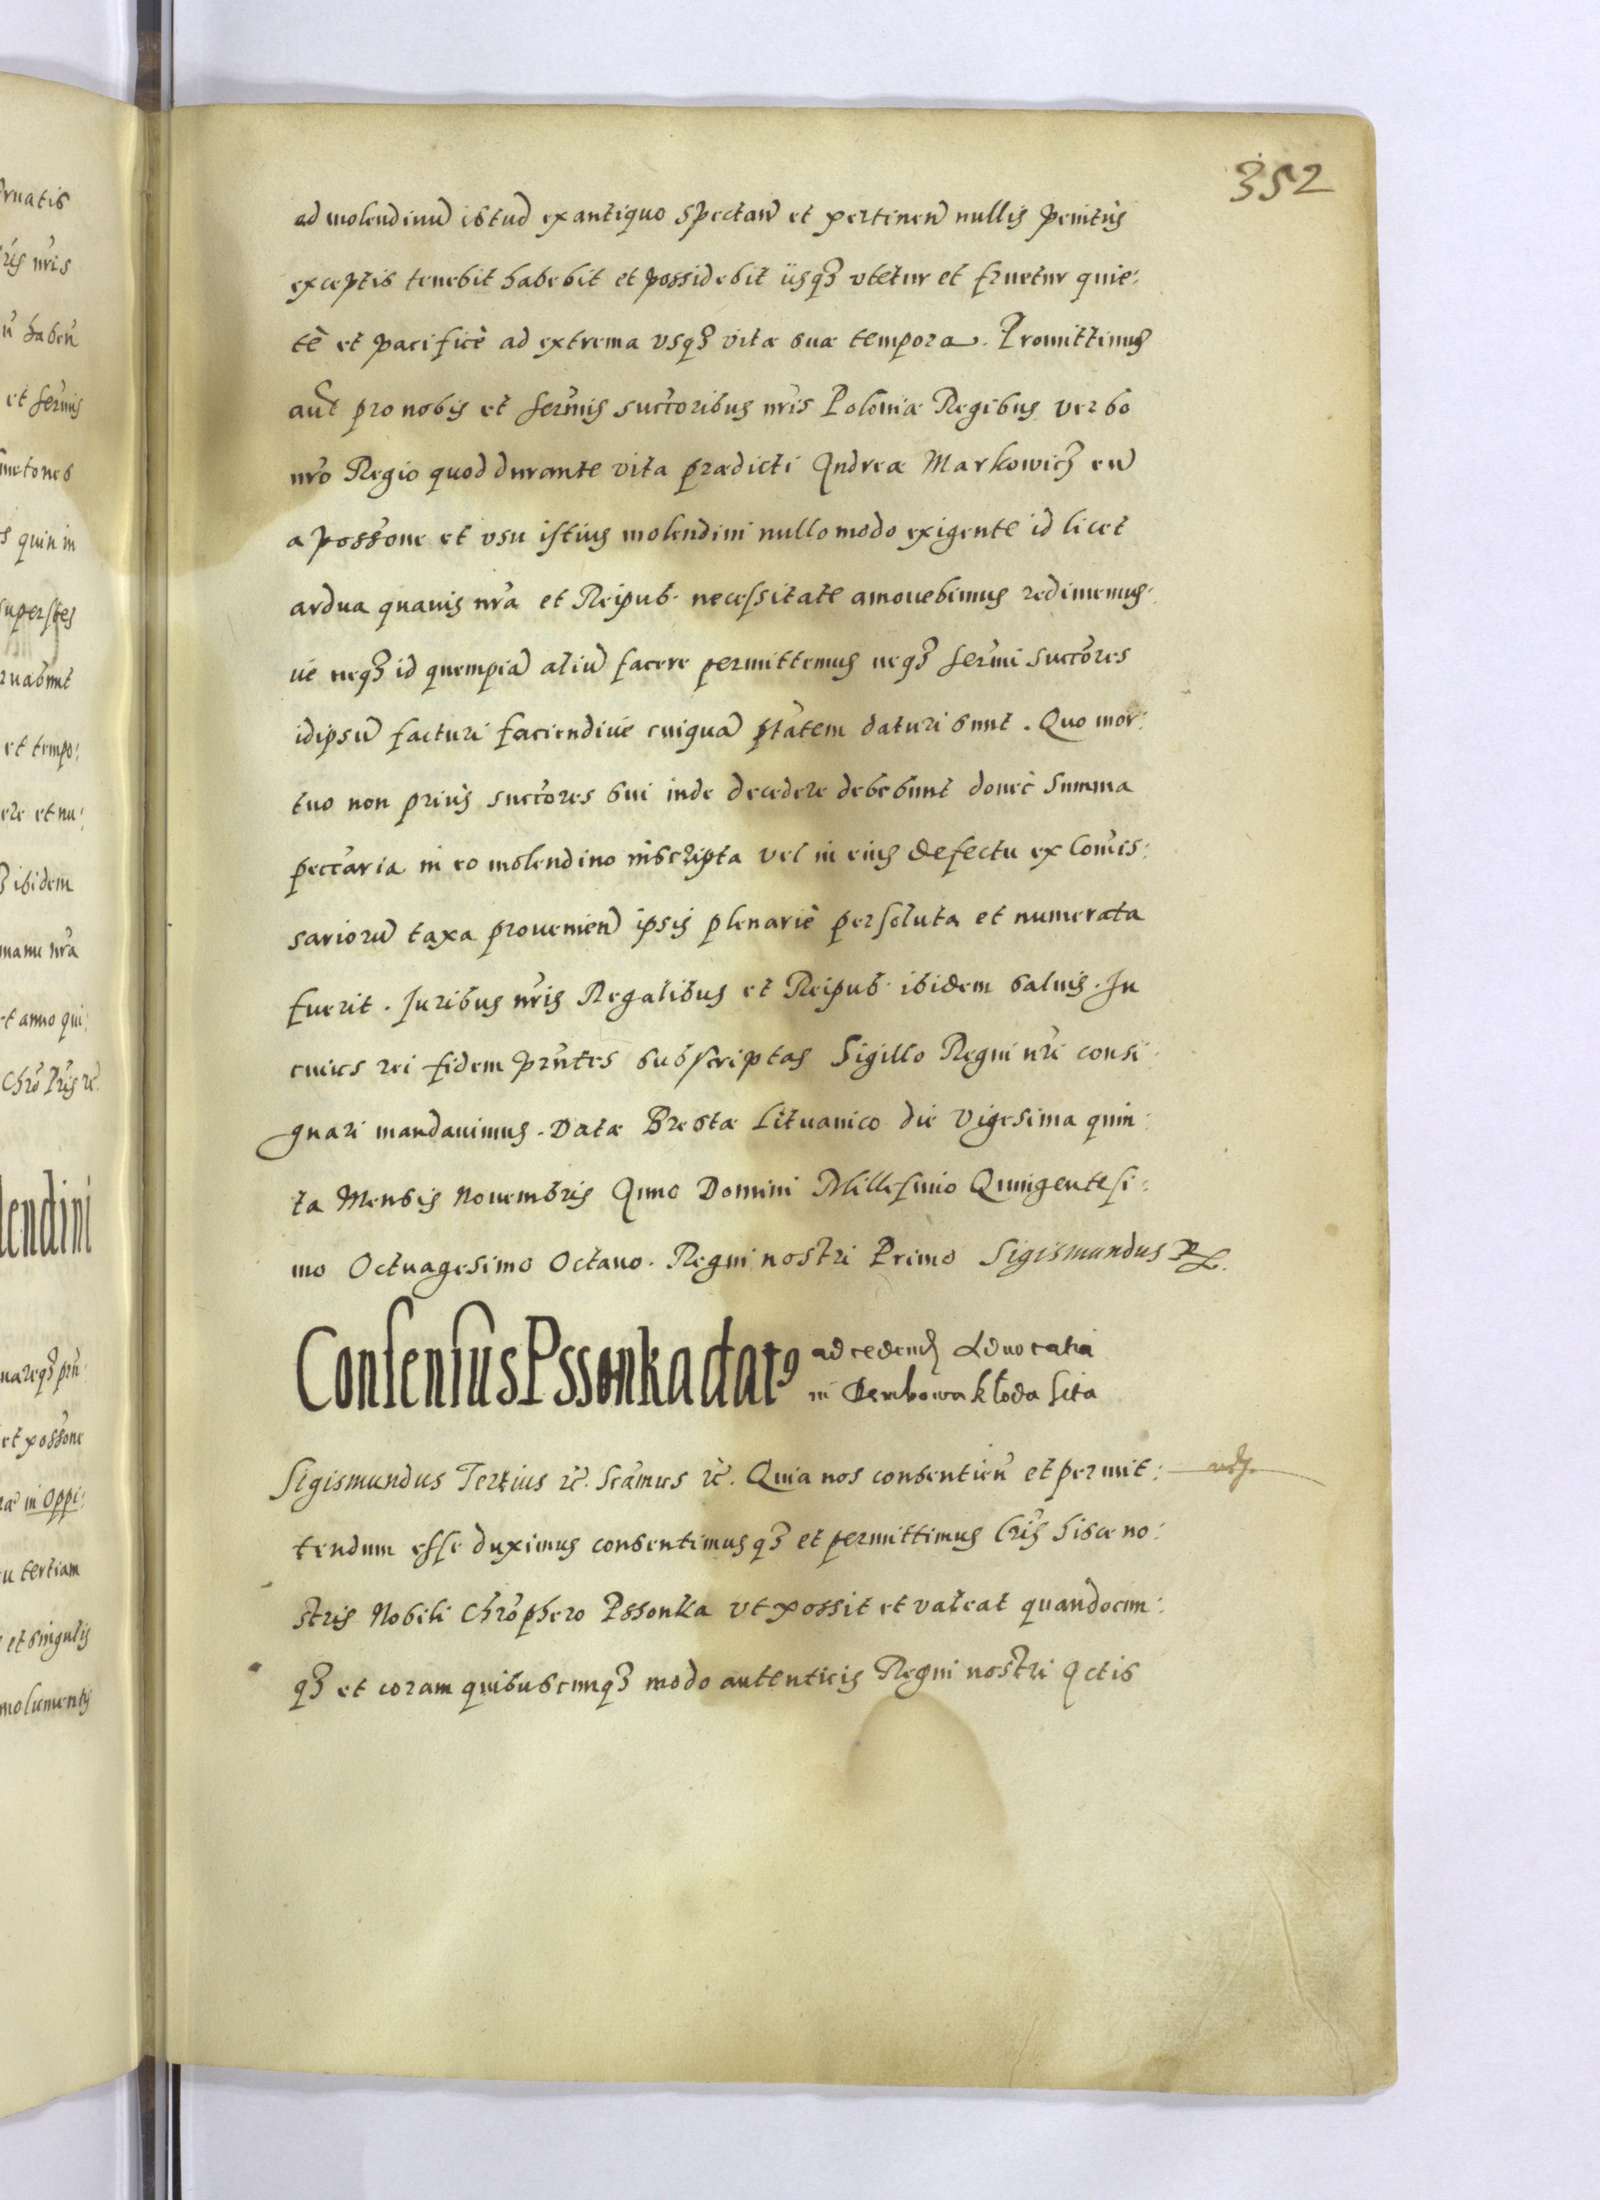 352
ad molendinũ istud ex antiquo spectan̄ et pertinen̄ nullis penitus
exceptis tenebit habebit et possidebit iisq3 vtetur et fruetur quie:
tè et pacificè ad extrema vsq3 vitæ suæ tempora. Promittimus
aũt pro nobis et serm̃is succ̃oribus nr̃is Poloniæ Regibus verbo
nr̃o Regio quod durante vita prædicti Andreæ Markowicz eũ
a possõne et vsu istius molendini nullo modo exigente id licet
ardua quauis nr̃a et Reipub. necessitate amouebimus redimemus:
ue neq3 id quempiã aliũ facere permittemus neq3 serm̃i succ̃ores
idipsũ facturi faciendiue cuiquã ptãtem daturi sunt. Quo mor:
tuo non prius succ̃ores sui inde decedere debebunt donec summa
pecc̃aria in eo molendino inscripta vel in eius defectu ex Com̃is:
sariorũ taxa prouenien̄ ipsis plenariè persoluta et numerata
fuerit. Juribus nr̃is Regalibus et Reipub. ibidem saluis. In
cuius rei fidem pr̃ntes subscriptas Sigillo Regni nr̃i consi:
gnari mandauimus. Datæ Brestæ Lituanico die Vigesima quin:
ta Mensis Nouembris Anno Domini Millesimo Quingentesi:
mo Octuagesimo Octauo. Regni nostri Primo Sigismundus Rx.
Consensus Pssonka datꝰ ad cedend̃ Aduocatia
in Dembowa kłoda sita
Sigismundus Tertius rč. Scãmus rč. Quia nos consentien̄ et permit:
tendum esse duximus consentimusq3 et permittimus lr̃is hisce no:
stris Nobili Chrõphero Pssonka vt possit et valeat quandocun:
q3 et coram quibuscunq3 modo autenticis Regni nostri Actis